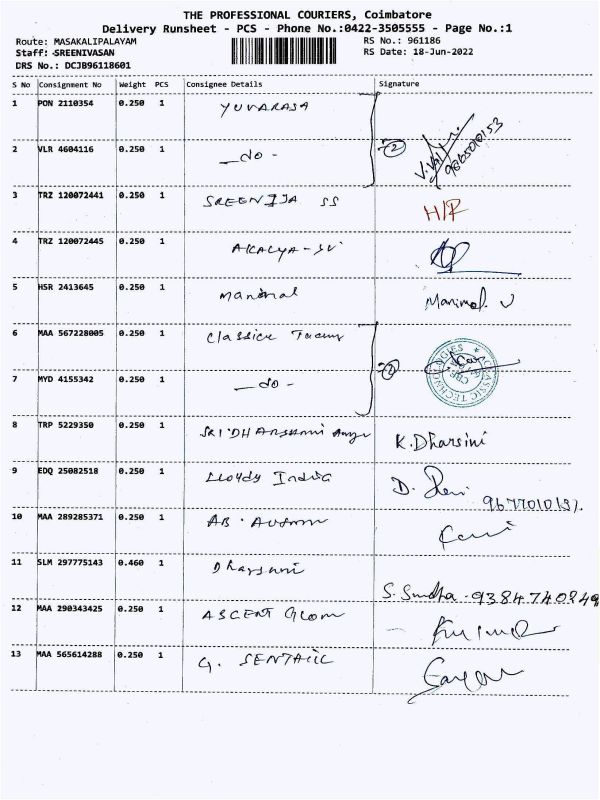 THE PROFESSIONAL COURIERS, Coimbatore
Delivery Runsheet - PCS - Phone No.:0422-3505555 - Page No.:1
Route: MASAKALIPALAYAM RS No.: 961186
Staff: SREENIVASAN RS Date: 18-Jun-2022
DRS No.: DCJB96118601
S No Consignment No Weight PCS Consignee Details Signature
1 PON 2110354 0.250 1 YUVARAJA
2 VLR 4604116 0.250 1 -do- 2
3 TRZ 120072441 0.250 1 SREENIJA SS H/R
4 TRZ 120072445 0.250 1 AKALYA-SV
5 HSR 2413645 0.250 1 Manimal Manimal. V
6 MAA 567228005 0.250 1 Classic
7 MYD 4155342 0.250 1 -do- 2 CLASSIC TECHNOLOGIES CBE
8 TRP 5229350 0.250 1 SRIDHARSHANI K.Dharsini
9 EDQ 25082518 0.250 1 Lloyds India D.
10 MAA 289285371 0.250 1 AB.
11 SLM 297775143 0.460 1 Dharshni S. Sundha - 9384740849
12 MAA 290343425 0.250 1 ASCENT
13 MAA 565614288 0.250 1 G. SENTHIL